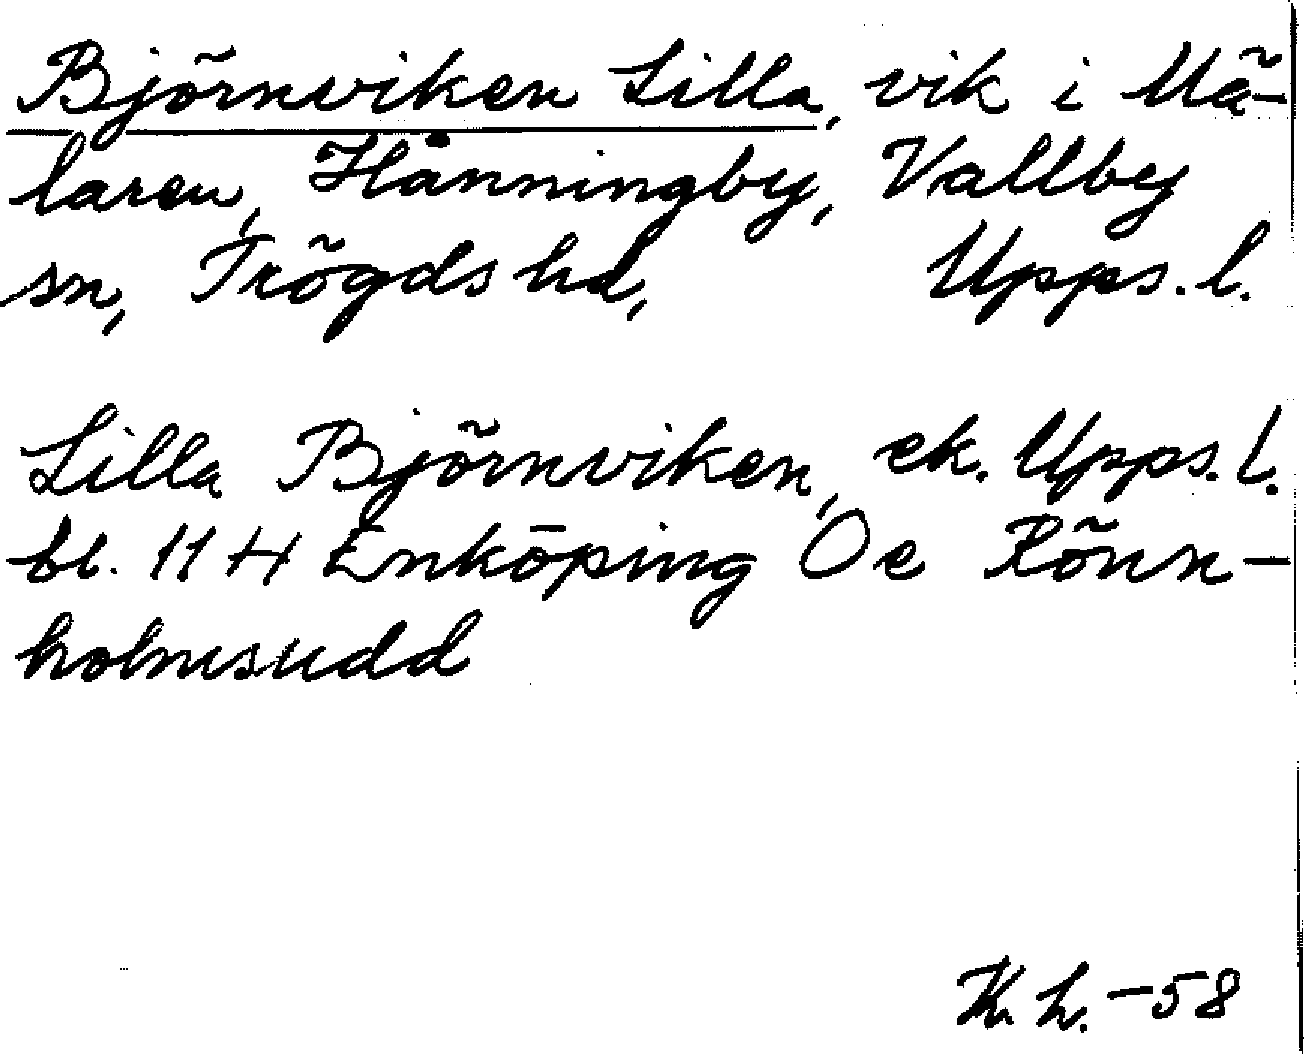 Björnviken Lilla, vik i Mä-
laren, Hänningby, Vallby
sn, Trögds hd, Upps. l.
Lilla Björnviken, ek. Upps. l.
bl. 11 H Enköping Öe Rönn-
holmsudd
K. L. -58